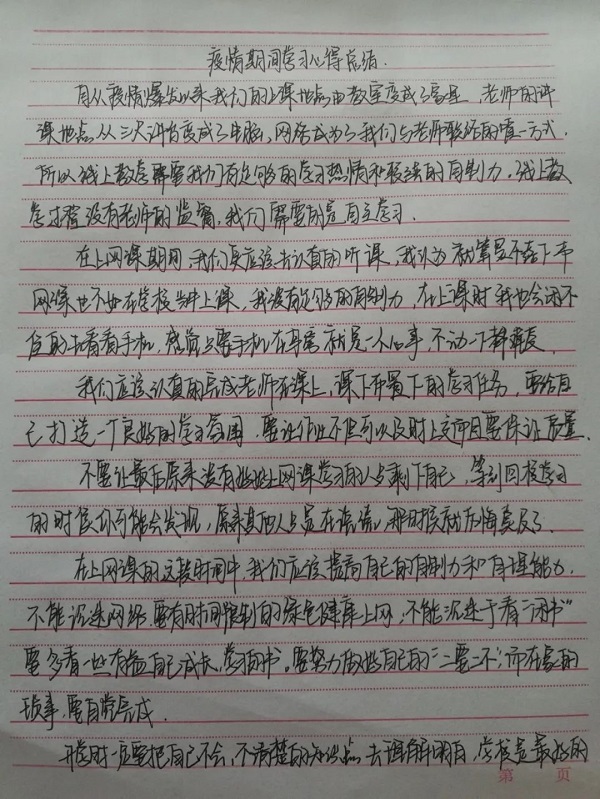 疫情期间学习心得总结.
自从疫情爆发以来我们的上课地点由教室变成了家里，老师的讲
课地点从三尺讲台变成了电脑，网络成为了我们与老师联络的唯一方式.
所以线上教学需要我们有足够的学习热情和极强的自制力。线上教
学过程没有老师的监督，我们需要的是自主学习.
在上网课期间，我们更应该去认真的听课，我认为就算是不在下
网课也不如在学校里上课，我没有足够的自制力，在上课时我也会闭不
自助去看看手机，感觉只要手机在身旁就是一个心事，不动一下都难受
我们应该认真的完成老师在课上，课下布置下的学习任务，要给自
己打造一个良好的学习氛围，要让作业不但可以及时上交而且要保证质量.
不要让最后原来没有好好上网课学习的人只剩下自己，等到回校学习
的时候你可能会发现，原来其他人只是在谎谎，那时候就后悔莫及了.
在上网课的这段时间中，我们应该提高自己的自制力和自理能力.
不能沉迷网络，要有时间限制的绿色健康上网，不能沉迷于看“闭书”
要多看一些有益自己成长，学习的书。要努力做好自己的“二要二不”，而在家的
琐事，要自觉完成.
开学时一定要把自己不会，不清楚的知识点去理解明白，学校是最好的
第 页